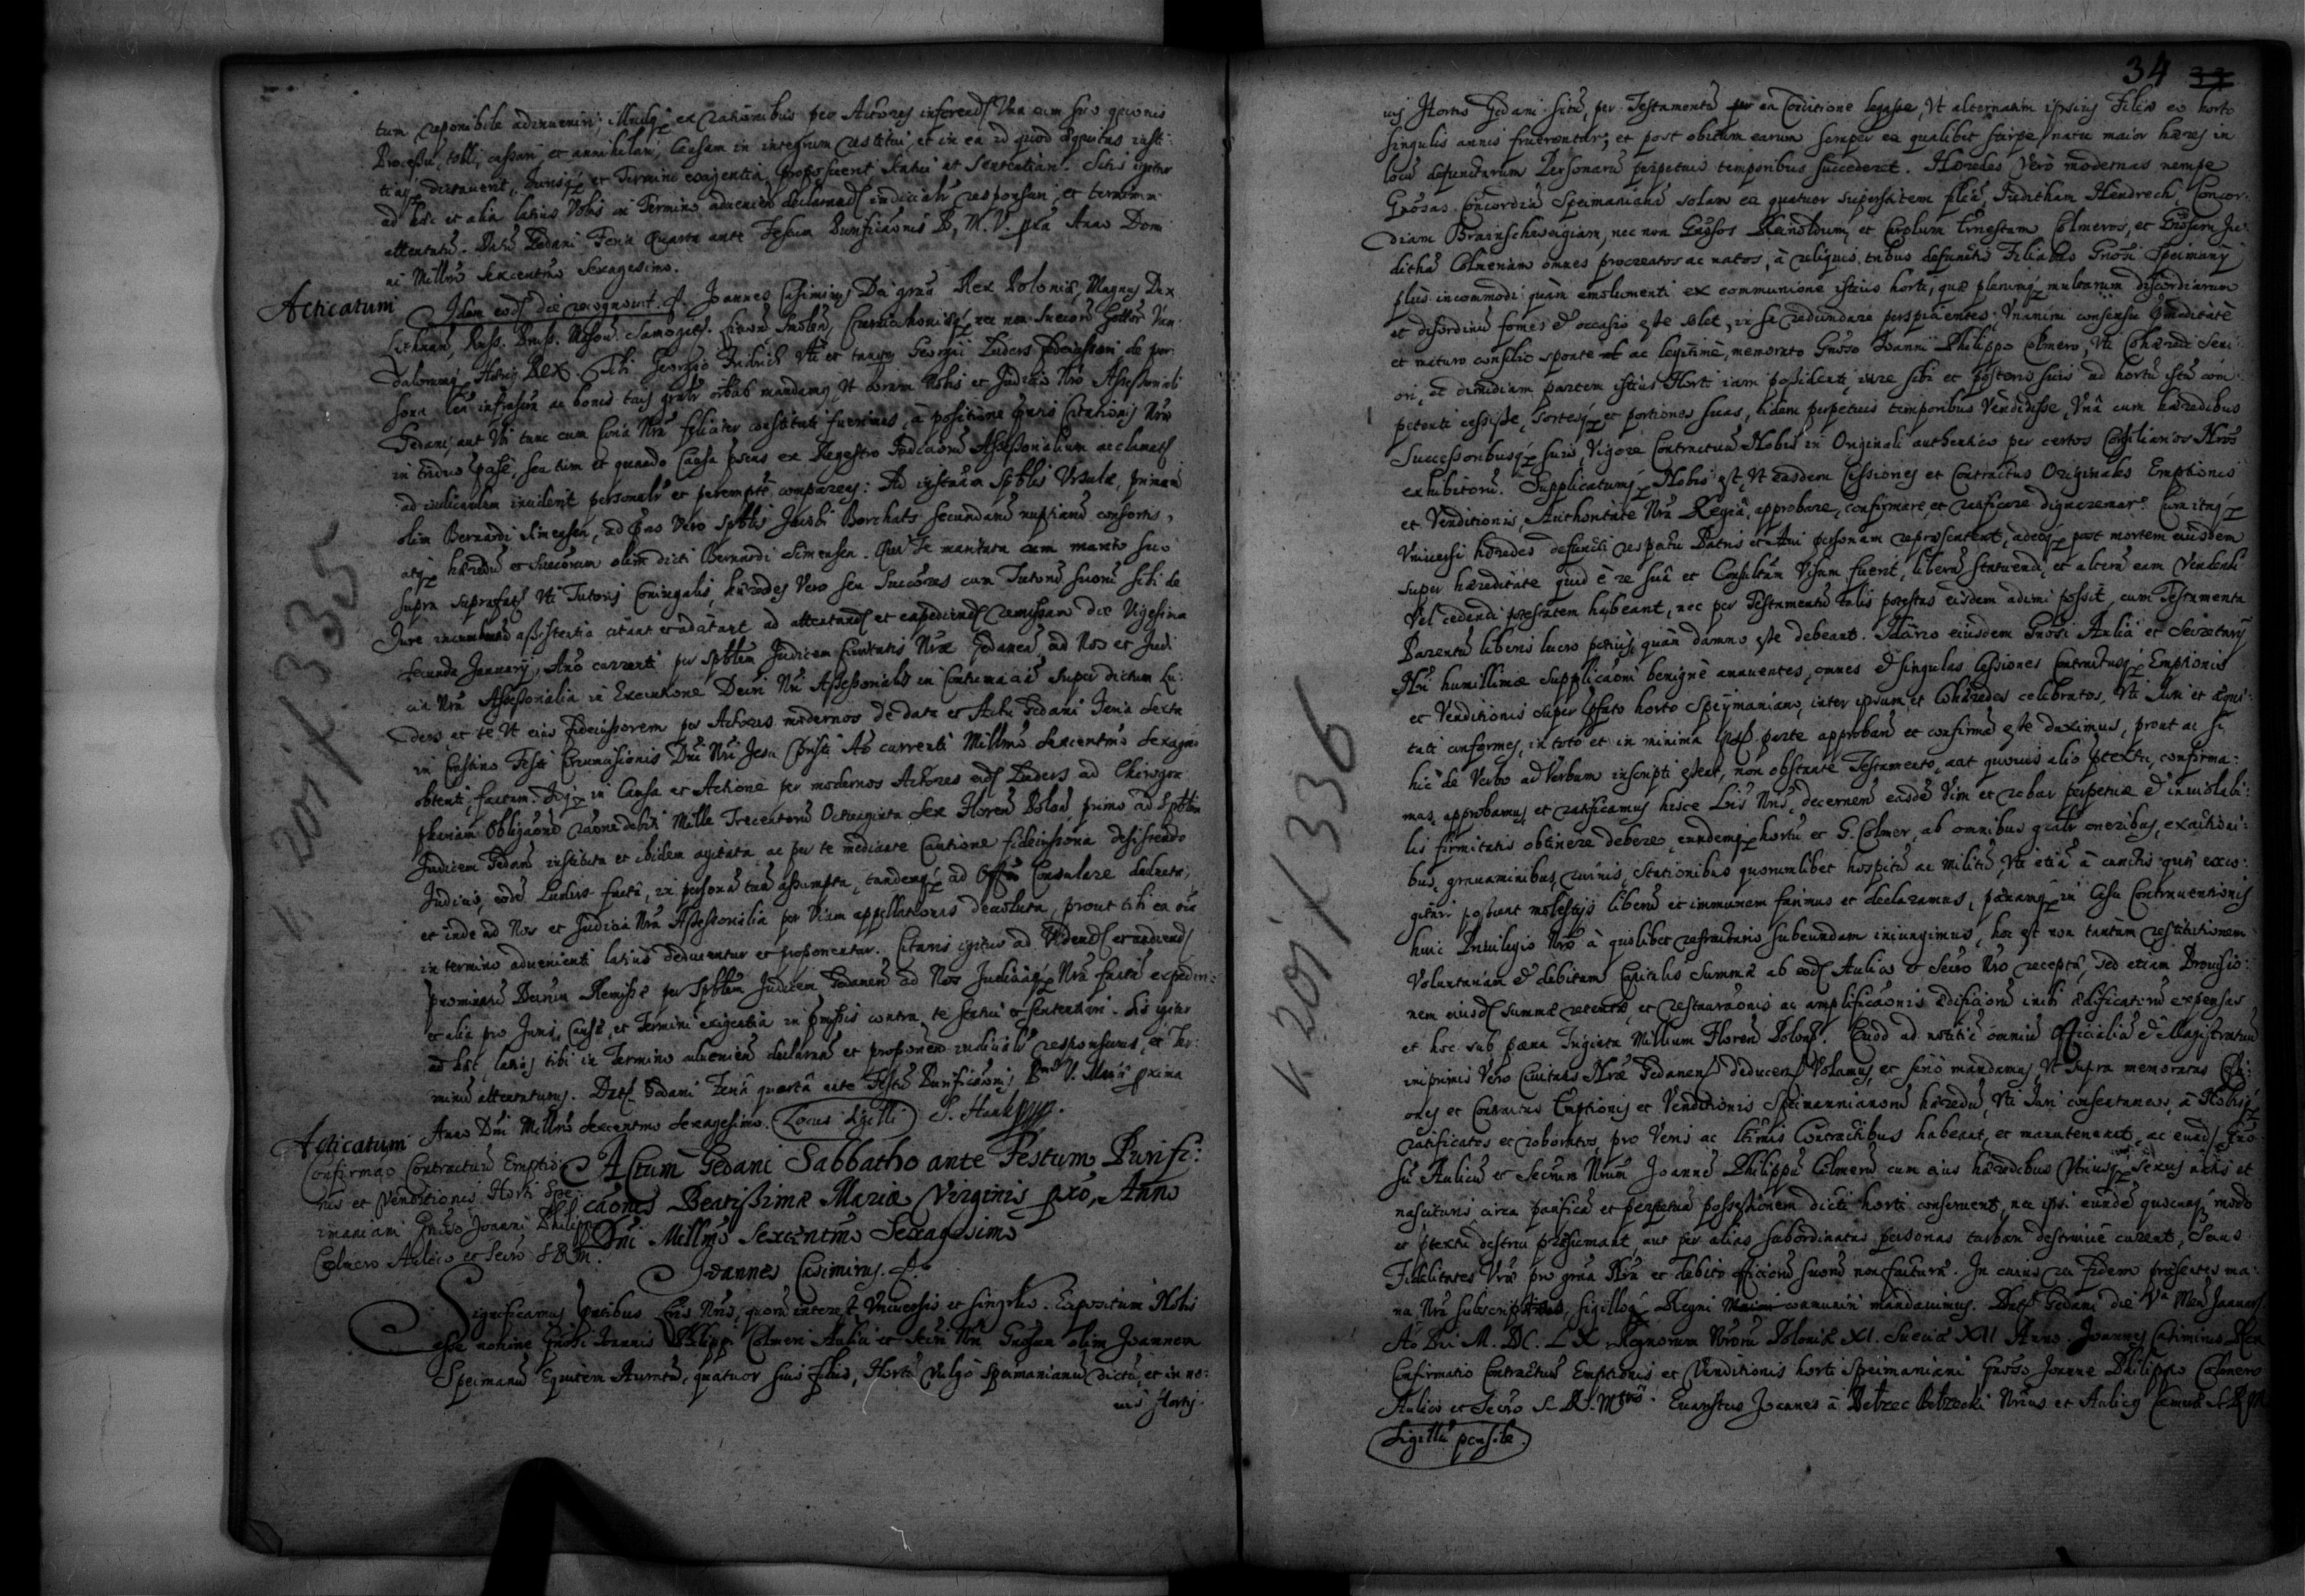 tum reponibile adinveniri; illudq; ex rationibus per Actores inferend. Una cum suo quovis
Processu, tolli, cassari, et annihilari, Causam in integrum restitui, et in ea id quod aequitas iusti:
tiaq; dictaverit, Jurisq; et Termini exigentia proposuerit statui et Sententiari. Sitis igitur
ad hoc et alia latius Vobis in Termino advenien declarand. iudicialr responsuri et terminum
attentaturi. Datũ Gedani Feria Quarta ante Festum Purificãonis B. M. V. pxa Anno Domi
ni Millmo Sexcentmo Sexagesimo.
Acticatum
Idem eod. die recognovit. Joannes Casimirus Dei grãa Rex Poloniæ, Magnus Dux
Lithuan, Russ. Pruss. Masov. Samogit. Livon Smolen, Czerniechoviæq; nec non Suecor Gottor Van:
dalorumq; Hæres Rex. Tibi Georgio Fridrich Uti et tanq; Georgii Luders fideiussori de per:
sona tua infrascri ac bonis tuis gnalr oĩbus mandamus, Ut coram Nobis et Judicio Nro Assessoriali
Gedani, aut Ubi tunc cum Curia Nra feliciter constituti fuerimus, à positione pntis Citationis Nræ
in triduo pase, seu tum et quando Causa pñs ex Regestro Judiciorũ Assessorialium acclamat
ad iudicandum inciderit personalr et peremptè compareas: Ad instãm Spblis Ursulæ, primarũ
olim Bernardi Simensen, ad pns Vero Spblis Jacobi Borchats secundarũ nuptiarũ consortis,
atq; hæredũ et succorum olim dicti Bernardi Simensen. Quæ Te maritata cum marito suo
supra suprafat Uti Tutoris Coniugalis, hæredes Vero seu succores cum Tutorũ suorũ sibi de
Jure incumben assistentia citant et adcitant ad attentand et expediend remissam die Vigesima
secunda January, Anõ currenti per Spblem Judicem Civitatis Nræ Gedanen, ad Nos et Judi
cia Nra Assessorialia in Executione Decri Nri Assessorialis in Contumaciã super dictum Lu:
ders et te Ut eius fideiussorem per Actores modernos de data et Actu Gedani Feria sexta
in Crastino Festi Circumcisionis Dni Nri Jesu Christi Aõ currenti Millmo sexcentmo sexagmo
obtenti, factam. Idq; in Causa et Actione per modernos Actores eid Luders ad Chirogra
phariam Obligãonẽ rãone debiti Mille Trecentorũ Octuaginta sex Floren Polon, primo ad Spblem
Judicem Gedanẽ instituta et ibidem agitata, ac per te mediante Cautione fideiussoria desistendo
Judicio, eodẽ Luders factã, in personã tuã assumpta, tandemq; ad Offm Consulare deducta,
et inde ad Nos et Judicia Nra Assessorialia per Viam appellationis devoluta, prout tibi ea oĩa
in termino advenienti latius deducentur et proponentur. Citaris igitur ad Videnđ et audienđ
præmissarũ Decrum Remissæ per Spblem Judicem Gedanen ad Nos Judiciaq; Nra factæ expediri:
et alia pro Juris, Causæ, et Termini exigentia in pmissis contra te statui et sententiari. Sis igitur
ad hoc, latius tibi in Termino advenien declaran et proponen iudicialr responsurus, et Ter:
minũ attentaturus. Dat Gedani Feria quarta ante Festũ Purificãonis Bmæ V. Mariæ proxima
Anno Dni Millmo Sexcentmo Sexagesimo. Locus Sigilli S.
Acticatum
Confirmão Contractuũ Emptio:
nis et Venditionis Horti Spe:
imaniani Gnõso Joanni Philippo
Colmero Aulico et Secrõ S R M.
Actum Gedani Sabbatho ante Festum Purifi:
cãonis Beatissimæ Mariæ Virginis pxõ, Anno
Dni Millmo Sexcentmo Sexagesimo
Joannes Casimirus.
Significamus pntibus Lris Nris, quorũ interest Universis et singulis. Expositum Nobis
esse nomine Gnosi Joannis Philippi Colmeri Aulici et Secrii Nri Gnosum olim Joannem
Speimanũ Equitem Auratũ, quatuor suis filiis, Hortũ vulgò Speimanianũ dictũ, et in no:
vis Hortis
34
vis Hortis Gedani sitũ, per Testamentũ ea Conditione legasse, Ut alternatim ipsius Filiæ eo horto
singulis annis fruerentur; et post obitum earum semper ex qualibet stirpe natu maior hæres in
locũ defunctarum Personarũ perpetuis temporibus succederet. Hæredes Verò modernas nempe
Gnosas Concordiã Speimanianã solam ex quatuor superstitem filiã, Juditham Hendrech, Concor:
diam Braunschweigiam, nec non Gnosos Reinoldum, et Carolum Ernestum Colmeros, et Gnosam Ju:
dithã Colmeriam omnes procreatos ac natos, à reliquis tribus defunctis Filiabus Gnosi Speimany
plus incommodi quàm emolumenti ex communione istius horti, quæ plerumq; multarum discordiarum
et disordinũ fomes et occasio esse solet, in se redundare perspicientes, Unanimi consensu pmeditatè
et maturo consilio sponte ac legitimè, memorato Gnoso Joanni Philippo Colmero, Uti Cohæredi seni:
ori, et dimidiam partem istius Horti iam possidenti, iure sibi et posteris suis ad hortũ istũ com:
petenti cessisse, sortesq; et portiones suas, eidem perpetuis temporibus Vendidisse, Unà cum hæredibus
Successoribusq; suis, Vigore Contractuum Nobis in Originali authentico per certos Consiliarios Nros
exhibitorũ. Supplicatumq; Nobis est, Ut easdem Cessiones et Contractus Originales Emptionis
et Venditionis, Authoritate Nra Regia, approbare, confirmare, et ratificare dignaremur. Cum itaq;
Universi hæredes defuncti respectu Patris et Avi personam repræsentent, adeoq; post mortem eiusdem
super hæreditate quid è re suâ et Consultũ Visum fuerit, liberè statuendi, et alteri eam Vendendi
Vel cedendi potestatem habeant, nec per Testamentũ talis potestas eisdem adimi possit, cum Testamenta
Parentũ liberis lucro potius quàm damno esse debeant. Idcirco eiusdem Gnosi Aulici et Secretarÿ
Nri humillimæ supplicãoni benignè annuentes, omnes et singulas Cessiones Contractusq; Emptionis
et Venditionis super pfato horto Speymaniano, inter ipsum et Cohæredes celebratos, Uti Juri et æqui:
tati conformes, in toto et in minima sui parte approbari et confirmã esse duximus, prout ac si
hic de Verbo ad Verbum inscripti essent, non obstante Testamento, aut quovis alio ptextu, confirma:
mus, approbamus, et ratificamus hisce Lris Nris, decernentes easdẽ Vim et robur perpetuæ et inviolabi:
lis firmitatis obtinere debere, eundemq; hortũ et G. Colmer, ab omnibus gnalr oneribus, exactioni:
bus, gravaminibus, curiis, stationibus quorumlibet hospitũ ac militũ, Uti etiã à cunctis quæ exco:
gitari possent molestijs liberũ et immunem facimus et declaramus, pænamq; in Casu Contraventionis
huic Privilegio Nro à quolibet refractario subeundam iniungimus, hoc est non tantùm restitutionem
Voluntariam et debitam Capitalis Summæ ab eod. Aulico et Secro Nro receptæ, sed etiam Provisio:
nem eiusd. summæ retentæ, et restaurãonis ac amplificãonis ædificiorũ inibi ædificatorũ expensas
et hoc sub pæna Triginta Millium Floren Polon. Quod ad notitiã omniũ Officialiũ et Magistratuũ
inprimis Vero Civitatis Nræ Gedanen deducen Volumus, et seriò mandamus, Ut supra memoratas Cessi:
ones et Contractus Emptionis et Venditionis Speimannianorũ hæredũ, Uti Juri consentaneos, à Nobisq;
ratificatos et roboratos, pro Veris ac ltimis Contractibus habeant, et manuteneant, ac eund. Gno:
sũ Aulicũ et Secrium Nrum Joannẽ Philippũ Colmerũ cum eius hæredibus Utriusq; sexus natis et
nascituris circa pacificã et perpetuã possessionem dicti horti conservent, nec ipsi eundẽ quocunq; modo
et ptextu destrui præsumant, aut per alias subordinatas personas turbari destruive curent, Secus
Fidelitates Vræ pro grãa Nra et debito officiorũ suorũ non facturæ. In cuius rei fidem præsentes ma:
nu Nra subscriptas, sigilloq; Regni communiri mandavimus. Dat Gedani die Va Mens January
Aõ Dni M. DC. LX. Regnorum Nrorũ Poloniæ XI. Sueciæ XII Anno. Joannes Casimirus Rex
Confirmatio Contractuũ Emptionis et Venditionis horti Speimaniani Gnoso Joanne Philippo Colmero
Aulico et Secrõ S. R. Mttis. Evaristus Joannes à Bełżec Bełzecki Nrius et Aulicq
Sigillũ pensile.
r. 2017 335
r. 2017 336